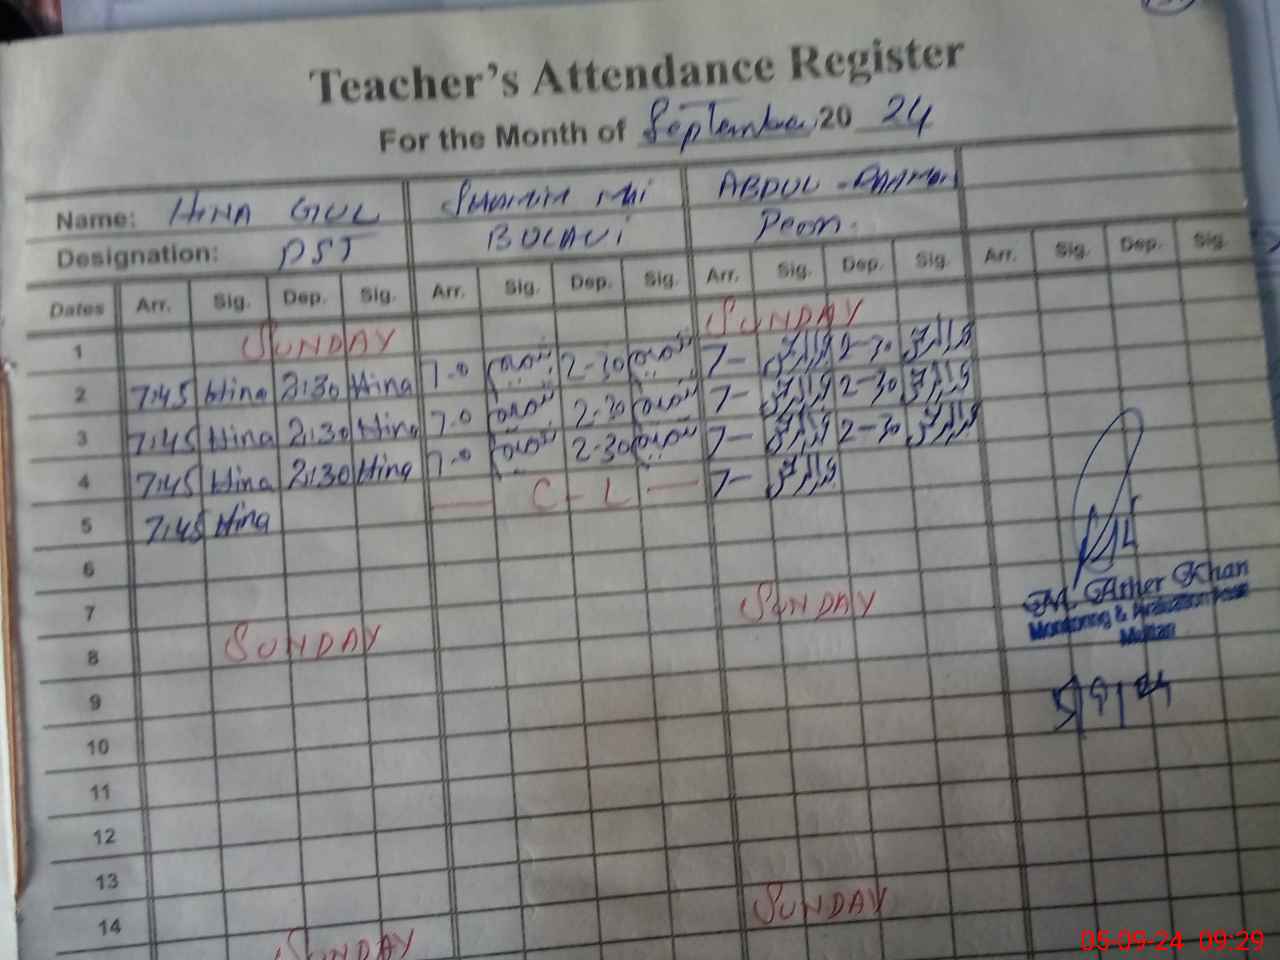 Teacher's Attendance Register
For the Month of September 2024
Name: HINA GUL SHAMIM Mai ABDUL
Designation: PST BULAVI Peon.
Dates Arr. Sig. Dep. Sig. Arr. Sig. Dep. Sig. Arr. Sig. Dep. Sig. Arr. Sig. Dep. Sig.
1 SUNDAY SUNDAY
2 7:45 Hina 2:30 Hina 7.0 2-30 7- 2-30
3 7:45 Hina 2:30 Hina 7.0 2-30 7- 2-30
4 7:45 Hina 2:30 Hina 7.0 2-30 7- 2-30
5 7:45 Hina — C - L — 7-
6
7
8 SUNDAY SUNDAY
9
10
11
12
13
14
SUNDAY SUNDAY
M. Ather Khan
Monitoring & Evaluation
Multan
5/9/24
05-09-24 09:29